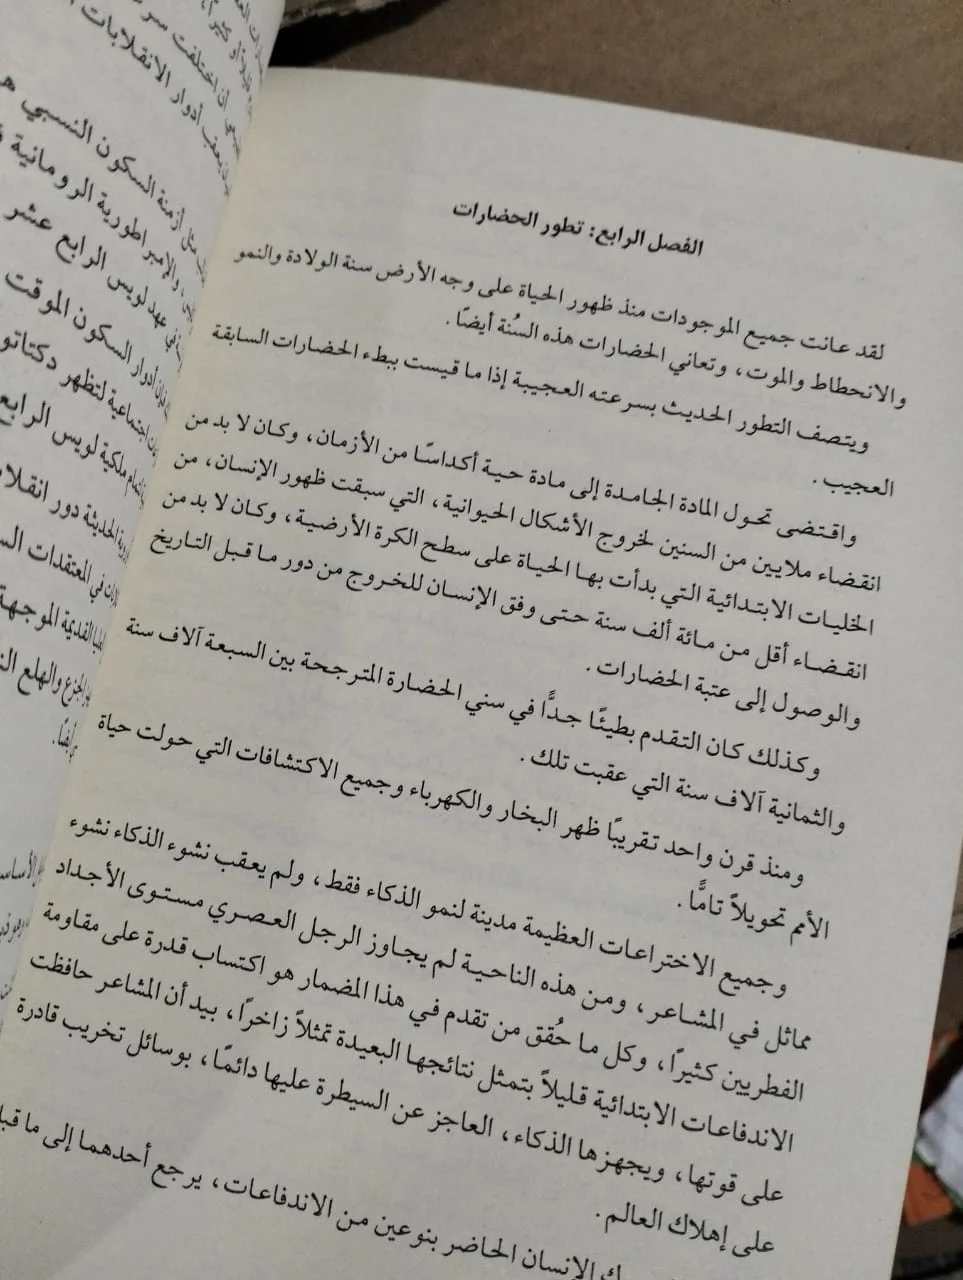 الفصل الرابع: تطور الحضارات
لقد عانت جميع الموجودات منذ ظهور الحياة على وجه الأرض سنة الولادة والنمو
والانحطاط والموت، وتعاني الحضارات هذه السُنة أيضًا.
ويتصف التطور الحديث بسرعته العجيبة إذا ما قيست ببطء الحضارات السابقة
العجيب.
واقتضى تحول المادة الجامدة إلى مادة حية أكداسًا من الأزمان، وكان لا بد من
انقضاء ملايين من السنين لخروج الأشكال الحيوانية، التي سبقت ظهور الإنسان، من
الخليات الابتدائية التي بدأت بها الحياة على سطح الكرة الأرضية، وكان لا بد من
انقضاء أقل من مائة ألف سنة حتى وفق الإنسان للخروج من دور ما قبل التاريخ
والوصول إلى عتبة الحضارات.
وكذلك كان التقدم بطيئًا جدًّا في سني الحضارة المترجحة بين السبعة آلاف سنة
والثمانية آلاف سنة التي عقبت تلك.
ومنذ قرن واحد تقريبًا ظهر البخار والكهرباء وجميع الاكتشافات التي حولت حياة
الأمم تحويلاً تامًّا.
وجميع الاختراعات العظيمة مدينة لنمو الذكاء فقط، ولم يعقب نشوء الذكاء نشوء
مماثل في المشاعر، ومن هذه الناحية لم يجاوز الرجل العصري مستوى الأجداد
الفطريين كثيرًا، وكل ما حُقق من تقدم في هذا المضمار هو اكتساب قدرة على مقاومة
الاندفاعات الابتدائية قليلاً بتمثل نتائجها البعيدة تمثلاً زاخرًا، بيد أن المشاعر حافظت
على قوتها، ويجهزها الذكاء، العاجز عن السيطرة عليها دائمًا، بوسائل تخريب قادرة
على إهلاك العالم.
الإنسان الحاضر بنوعين من الاندفاعات، يرجع أحدهما إلى ما
أدوار الانقلابات
مثل أزمنة السكون النسبي
والإمبراطورية الرومانية
في عهد لويس الرابع عشر
أدوار السكون الموقت
اجتماعية لتظهر
ملكية لويس الرابع
الحديثة دور
في المعتقدات
القديمة الموجهة
الجزع والهلع